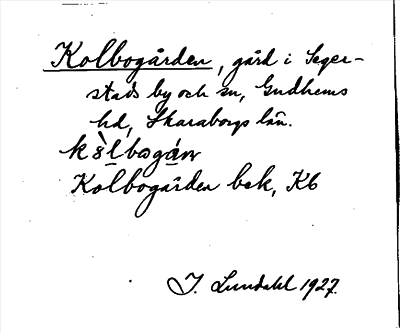 Kolbogården, gård i Seger-
stads by och sn, Gudhems
hd, Skaraborgs län.
kòlbogánr
Kolbogården bek, K6
I. Lundahl 1927.